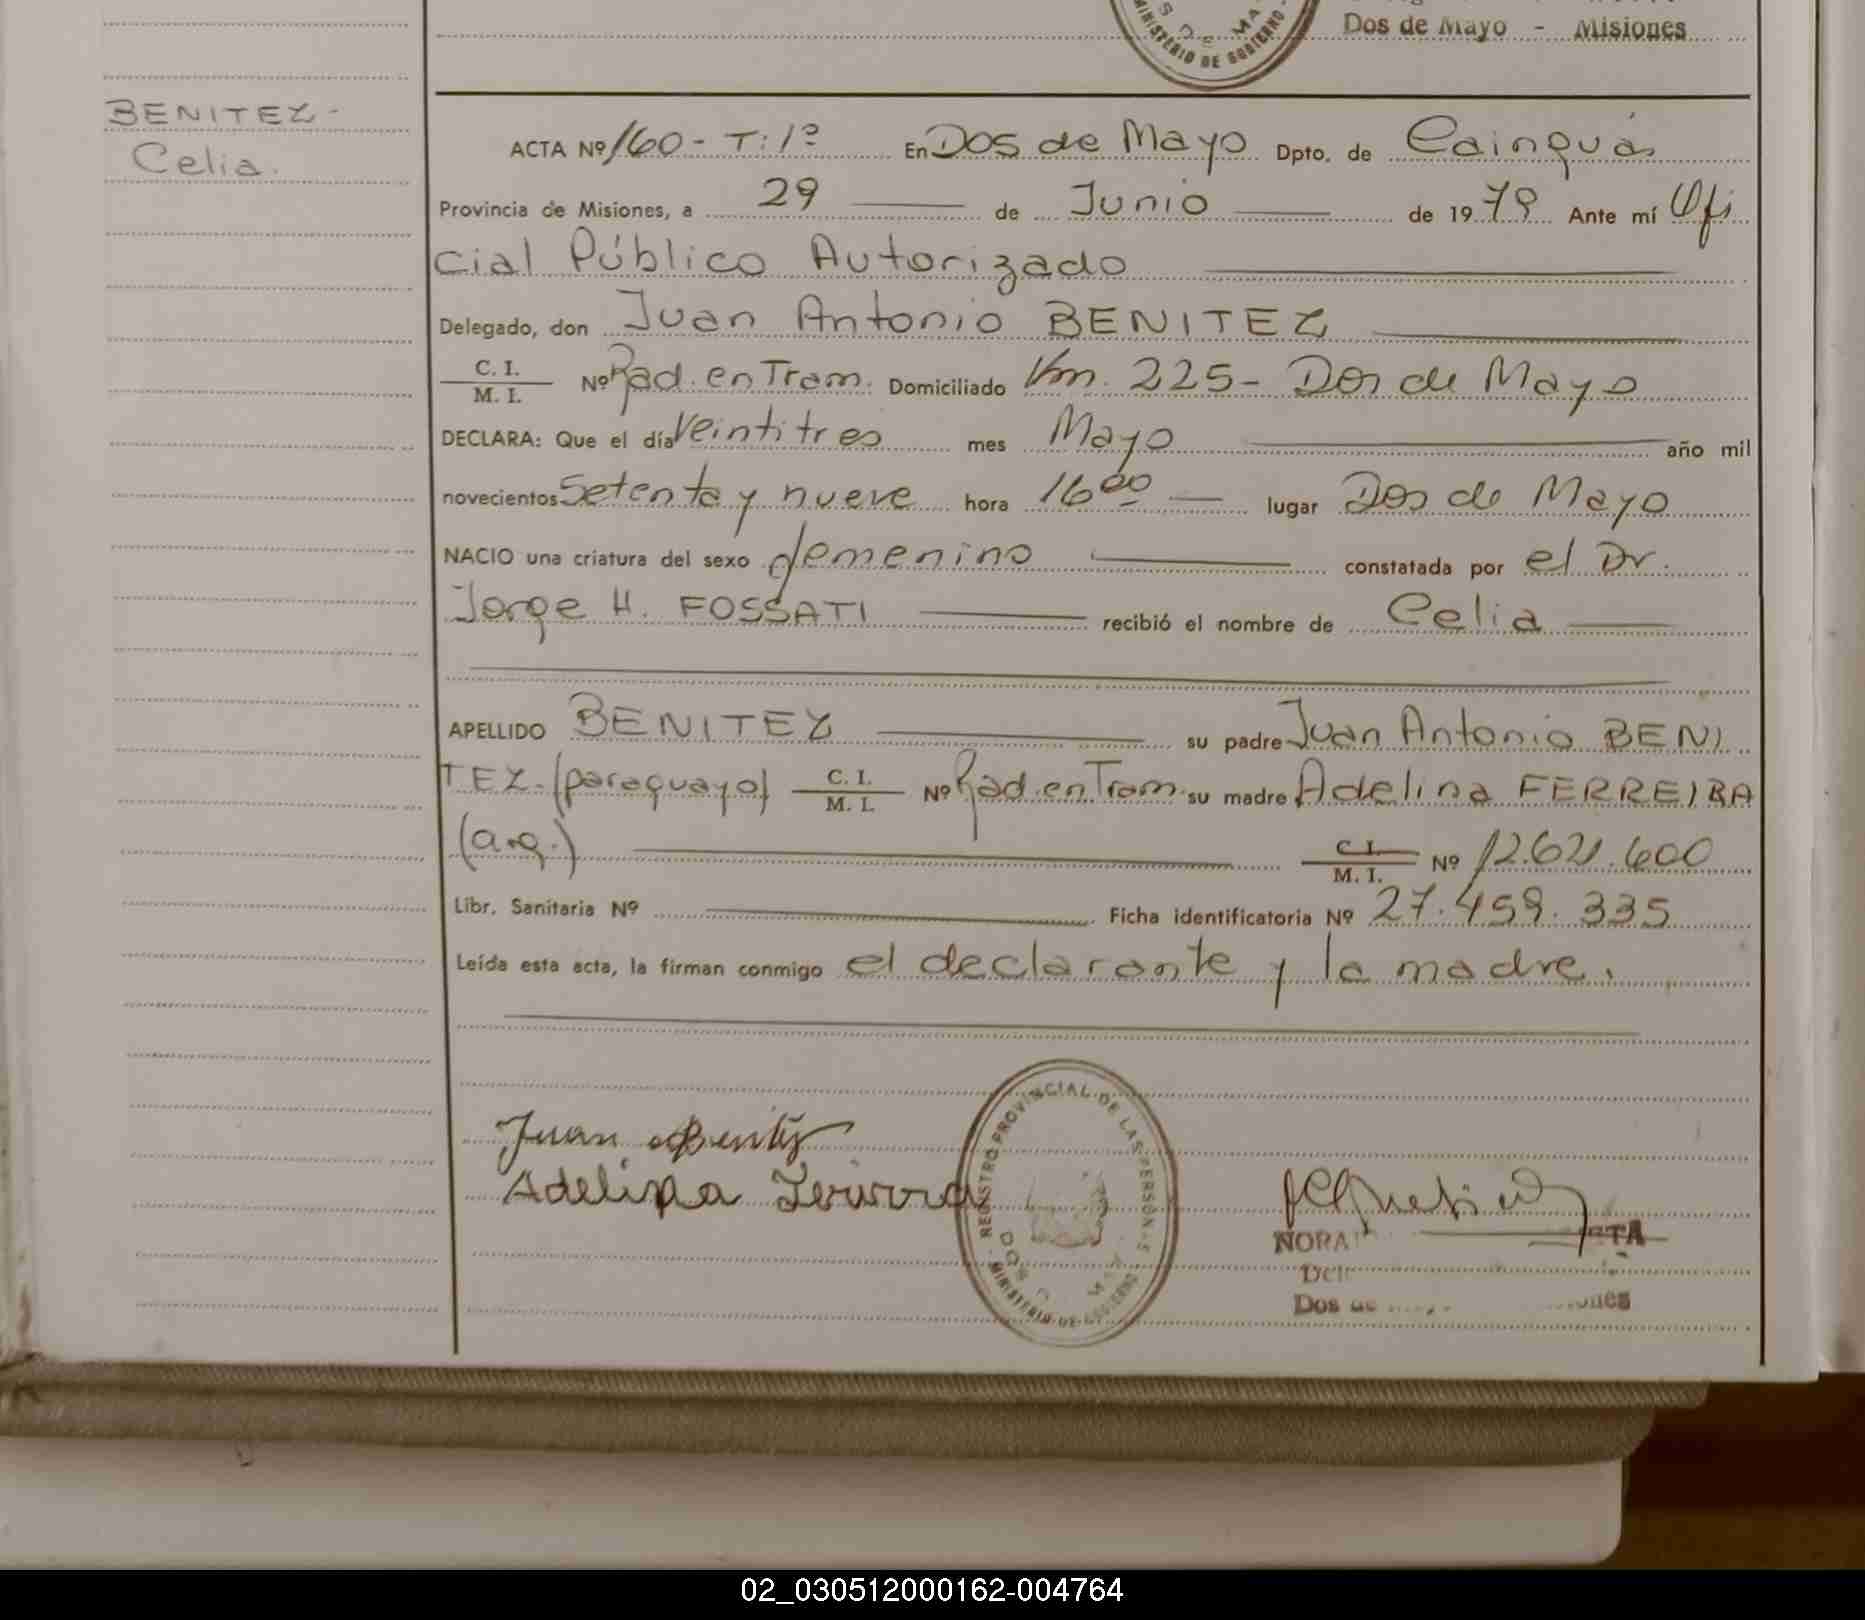 Dos de Mayo - Misiones
MINISTERIO DE GOBIERNO
BENITEZ -
Celia.
ACTA Nº 160 - T: 1º En Dos de Mayo Dpto. de Cainguás
Provincia de Misiones, a 29 de Junio de 1979 Ante mí Ofi
cial Público Autorizado
Delegado, don Juan Antonio BENITEZ
C. I. / M. I. Nº Rad. en Tram. Domiciliado Km. 225 - Dos de Mayo
DECLARA: Que el día Veintitres mes Mayo año mil
novecientos Setenta y nueve hora 16 00 lugar Dos de Mayo
NACIO una criatura del sexo femenino constatada por el Dr.
Jorge H. FOSSATI recibió el nombre de Celia
APELLIDO BENITEZ su padre Juan Antonio BENI
TEZ. (paraguayo) C. I. / M. I. Nº Rad. en Tram. su madre Adelina FERREIRA
(arg.) C. I. / M. I. Nº 12.621.600
Libr. Sanitaria Nº Ficha identificatoria Nº 27.459.335
Leída esta acta, la firman conmigo el declarante y la madre.
Juan Benitez
Adelina Ferreira
REGISTRO PROVINCIAL DE LAS PERSONAS
MINISTERIO DE GOBIERNO
NORA
Dos de
02_030512000162-004764